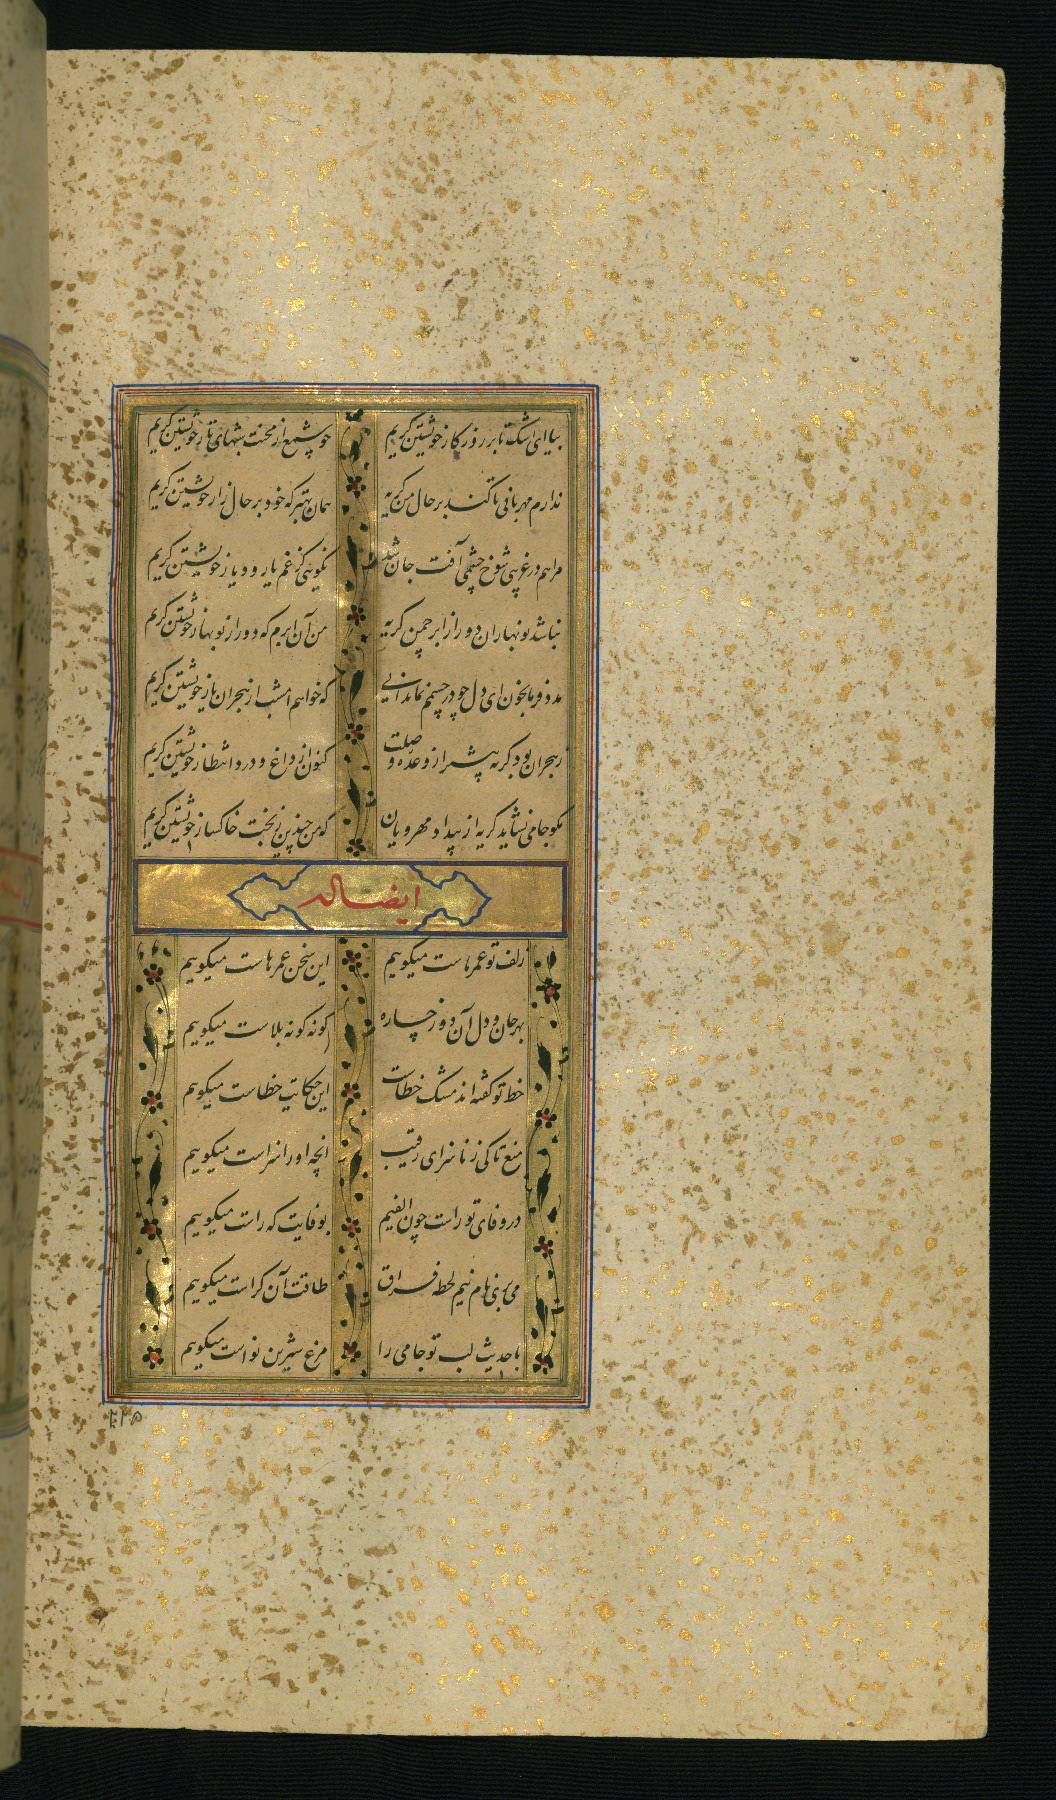 بیا ای اشک تا بر روزگار خویشتن گریم چو شمع از محنت شبهای تار خویشتن گریم
ندارم مهربانی تا کند بر حال من گریه همان بهتر که خود بر حال زار خویشتن گریم
مرا هم در غریبی شوخ چشمی آفت جان شد نگویی کز غم یار و دیار خویشتن گریم
نباشد نوبهاران دور از ابر چمن گریه من آن ابرم که دور از نوبهار خویشتن گریم
مدد فرما بخون ای دل چو در چشمم نماند آبی که خواهم امشب از هجران یار خویشتن گریم
ز هجران بود گریه پیشتر از وعده وصلت کنون از داغ و درد انتظار خویشتن گریم
مگو جامی نشاید گریه از بیداد مهرویان که من چندین ز بخت خاکسار خویشتن گریم
ایضا له
زلف تو عمر ماست میگوییم این سخن عمرهاست میگوییم
بهر جان و دل آن دو رخساره گونه گونه بلاست میگوییم
خط تو گفته اند مشک خطاست این حکایت خطاست میگوییم
منع تا کی ز ناسزای رقیب آنچه او را سزاست میگوییم
در وفای تو راست چون الفیم بوفایت که راست میگوییم
می بری نام نیم لحظه فراق طاقت آن کراست میگوییم
با حدیث لب تو جامی را مرغ شیرین نواست میگوییم